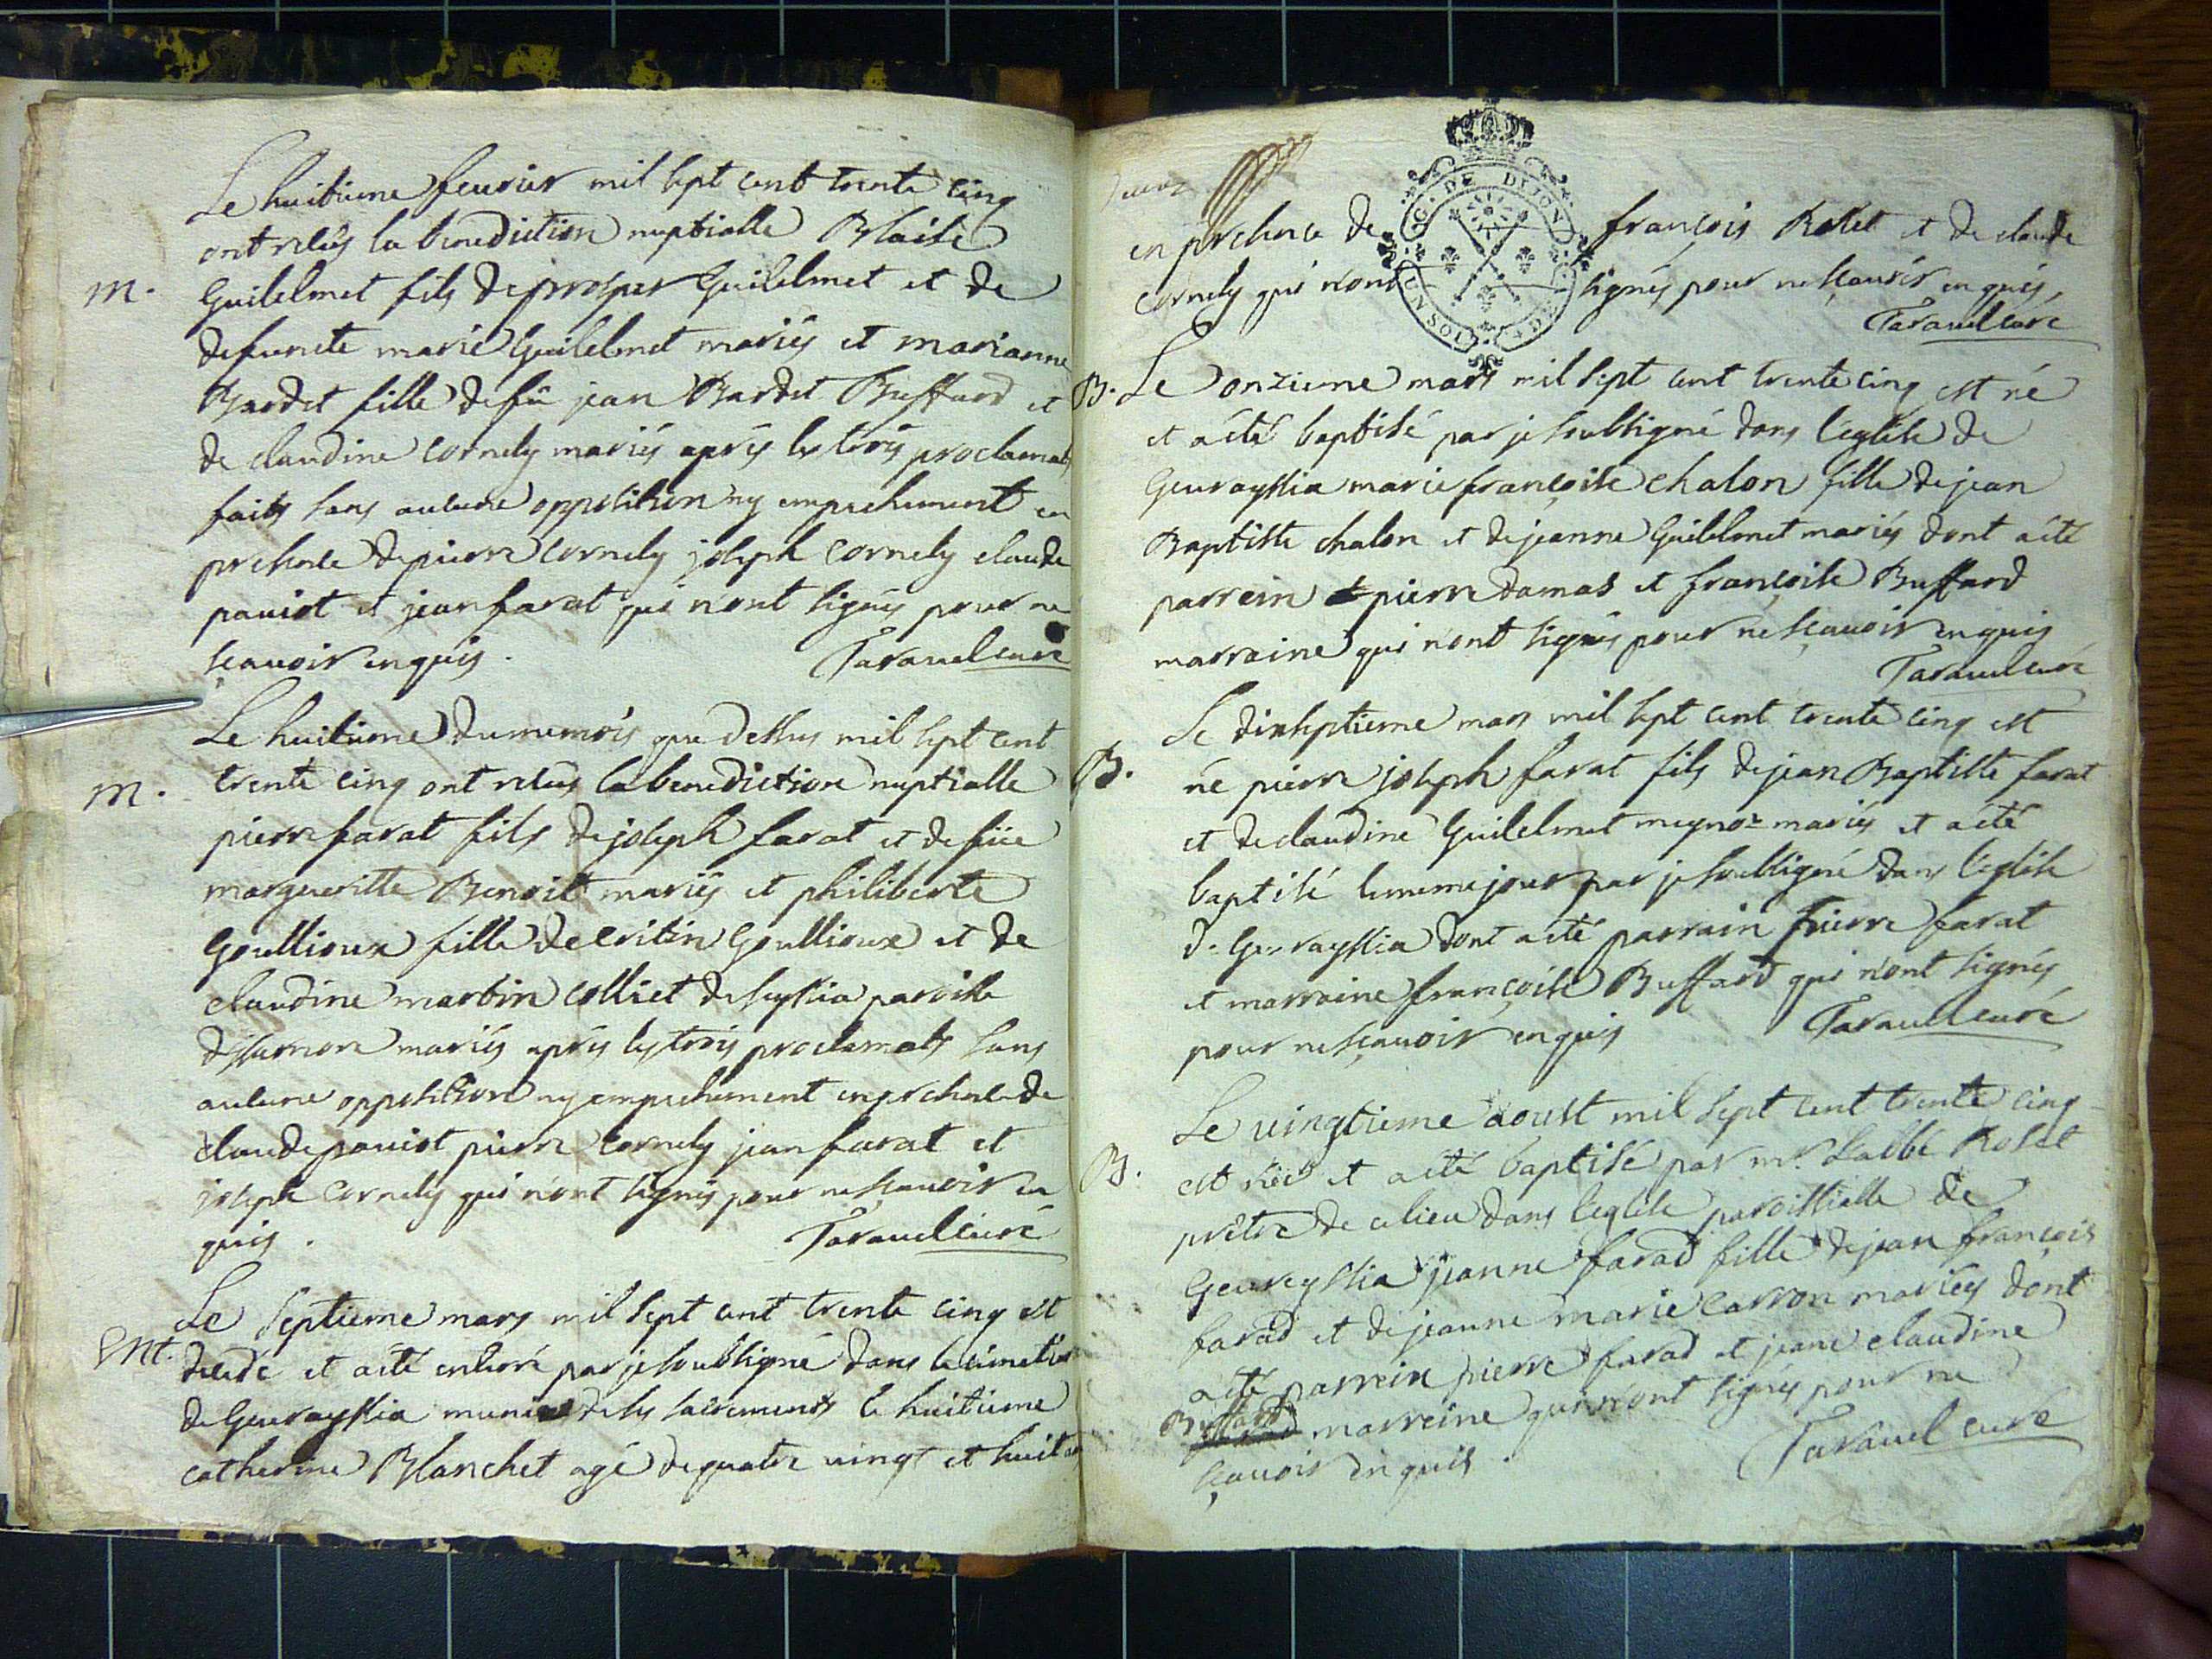 Le huitieme feurier mil sept cent trente cinq
ont reçus la benediction nuptialle Blaise
m. Guilelmet fils de prosper Guilelmet et de
defuncte marie Guilelmet mariés et marianne
Bardet fille de fû jean Bardet Buffard et
de claudine Cornely mariés aprés les trois proclamats
faits sans aucune opposition ny empechement en
presence de pierre Cornely joseph Cornely claude
pauiot et jean farat qui n'ont signés pour ne
sçauoir enquis. Tarauel curé
Le huitieme du meme mois que dessus mil sept cent
m. trente cinq ont reçus la benediction nuptialle
pierre farat fils de joseph farat et de fûe
margueritte Benoit mariés et philiberte
Goullioux fille de Goullioux et de
claudine martin colliet de paroisse
mariés aprés les trois proclamats sans
aucune opposition ny empechement en presence de
claude pauiot pierre Cornely jean farat et
joseph Cornely qui n'ont signés pour ne sçauoir en
quis. Tarauel curé
Le septieme mars mil sept cent trente cinq est
Ent. decedé et a été enterré par je soussigné dans le cimetier
de Geurayssia munie de ses sacrements le huitieme
catherine Blanchet agé de quatre uingt et huit an
en presence de françois Rolet et de claude
Cornely qui n'ont signés pour ne sçauoir enquis,
Tarauel curé
G. DE DIJON
UN SOL DE
B. Le onzieme mars mil sept cent trente cinq est né
et a été baptisé par je soussigné dans l'eglise de
Geurayssia marie françoise chalon fille de jean
Baptiste chalon et de jeanne Guilelmet mariés dont a été
parrein pierre damas et françoise Buffard
marraine qui n'ont signés pour ne sçauoir enquis
Tarauel curé
Le dixseptieme mars mil sept cent trente cinq est
B. né pierre joseph farat fils de jean Baptiste farat
et de claudine Guilelmet mariés et a été
baptisé le meme jour par je soussigné dans l'eglise
de Geurayssia dont a été parrain pierre farat
et marraine françoise Buffard qui n'ont signés
pour ne sçauoir enquis Tarauel curé
Le uingtieme aoust mil sept cent trente cinq
B. est née et a été baptisé par mr. L'abbé Rolet
prêtre de ce lieu dans l'eglise paroissialle de
Geureyssia jeanne farad fille de jean françois
farad et de jeanne marie carron mariés dont
a été parrein pierre farad et jeane claudine
Buffard marreine qui n'ont signés pour ne
sçauoir enquis. Tarauel curé